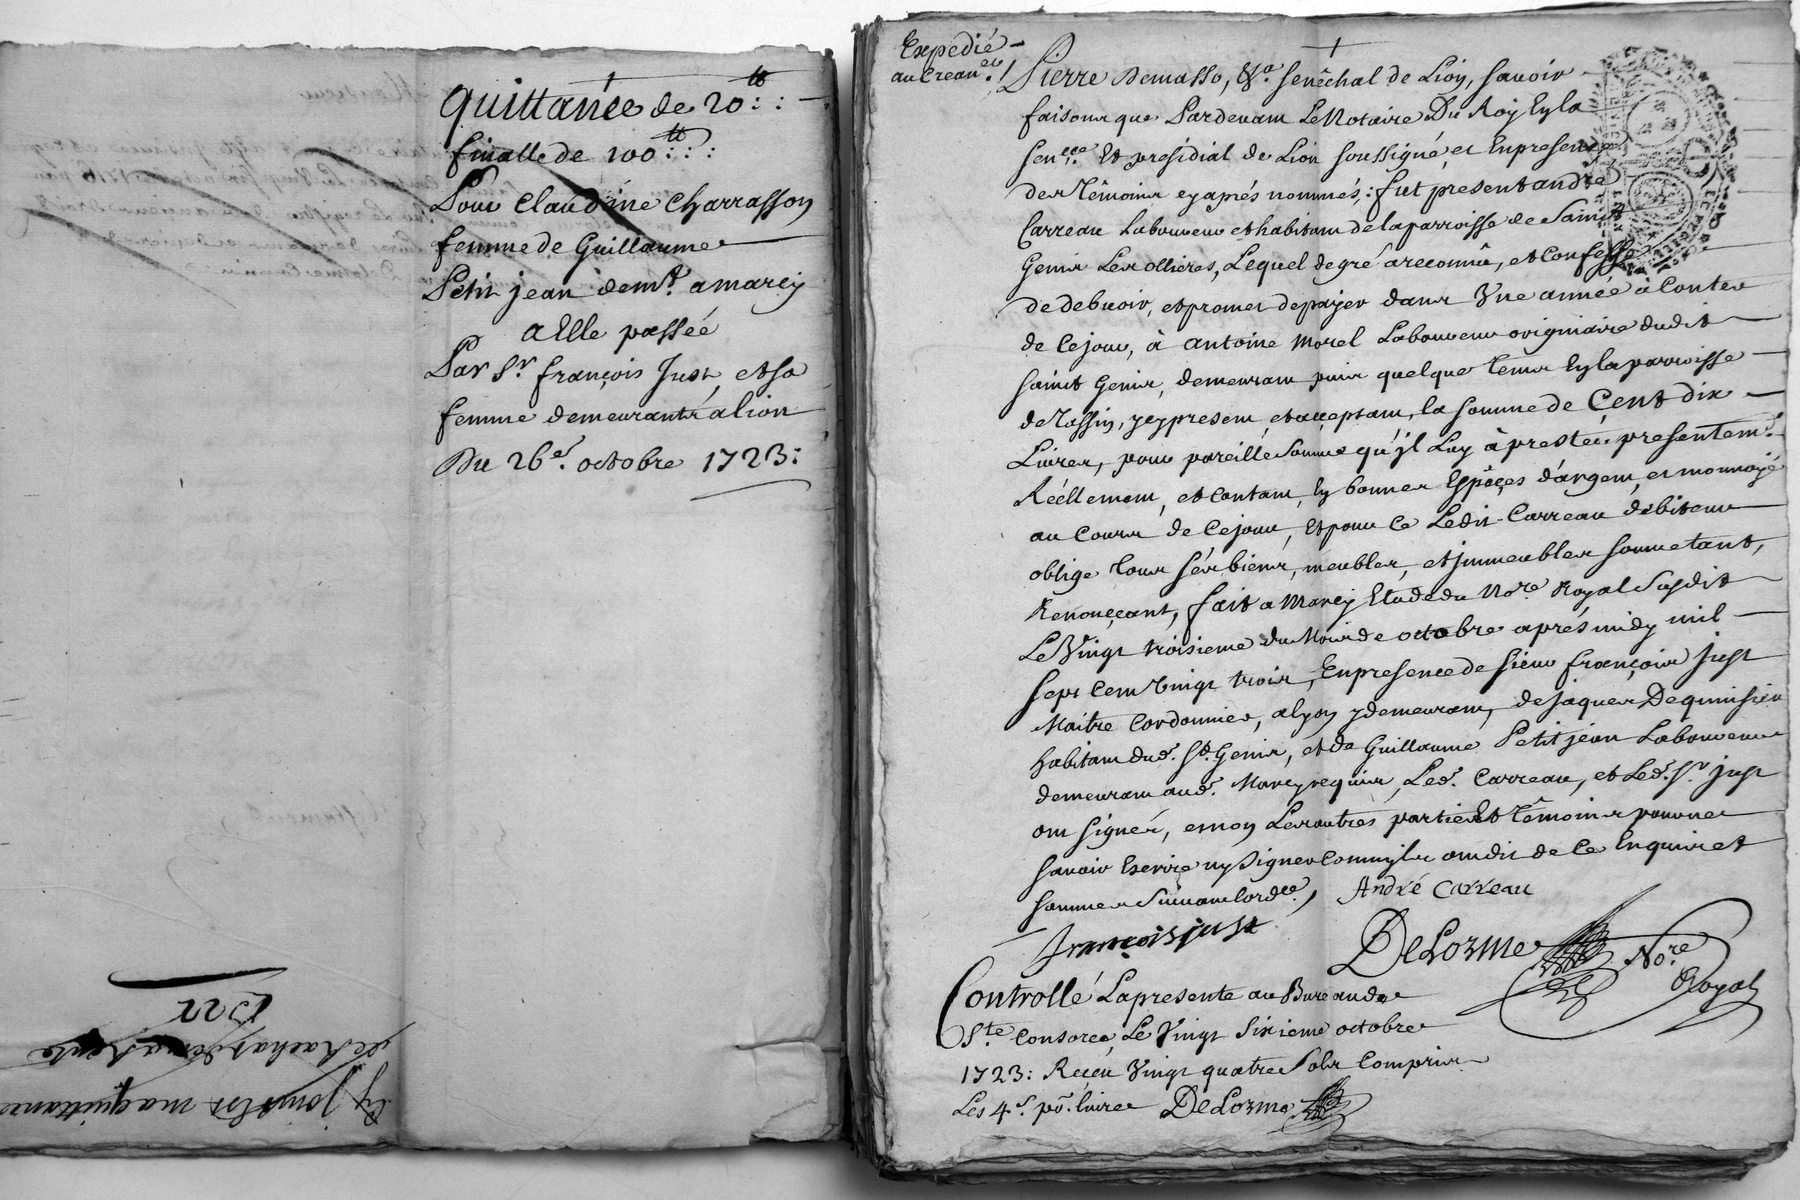 quittance de 20 ₶
finalle de 100 ₶
Pour claudine charrasson
femme de Guillaume
Petit jean dem.t a marcy
a Elle passée
Par S.r françois Just, et sa
femme demeurants a lion
Du 26.e octobre 1723:
1722
Expedié
au Crean.er
Pierre Demasso, &.a senêchal de Lion, savoir
faisons que Pardevant Le Notaire Du Roy En la
Sen.cée Et presidial de Lion soussigné, et En presence
des temoins cy aprés nommés: fut present andré
Carreau Laboureur et habitant de la parroisse de Saint
Genis Les ollieres, Lequel de gré a reconnû, et Confessé
de debvoir, et promet de payer dans Une année à Conter
de Ce jour, à antoine Morel Laboureur originaire dudit
saint Genis, demeurant puis quelque tems En la parroisse
de Tassin, jcy present, et acceptant, la somme de Cent dix
Livres, pour pareille Somme qu'jl Luy à prestée presentem.t
Réellement, et Contant, En bonnes Espêces d'argent, et monnoyé
au Cours de Ce jour, Et pour Ce Ledit Carreau débiteur
oblige tous sés biens, meubles, et jmmeubles soumetant,
Renonçcant, fait a Marcy Etude du No.re Royal Susdit
Le Vingt troisieme du Mois de octobre aprés midy mil
sept Cent Vingt trois, En presence de sieur françois just
Maitre Cordonnier, a lyon y demeurant, de jaques Dequinsieu
habitant dud. S.t Genis, et de Guillaume Petit jean Laboureur
demeurant aud. Marcy requis, Led. Carreau, et Led. S.r just
ont signés, et non Les autres parties Et têmoins pour ne
savoir Escrire ny Signer Comm'jls ont dit de Ce Enquis et
sommes Suivant L'ord.ce, André Carreau
françois just
DeLorme No.re Royal
Controllé La presente au Bureau de
S.te Consorce Le Vingt Sixieme octobre
1723: Reçeu Vingt quatre Sols Compris
Les 4.s p.r livre DeLorme